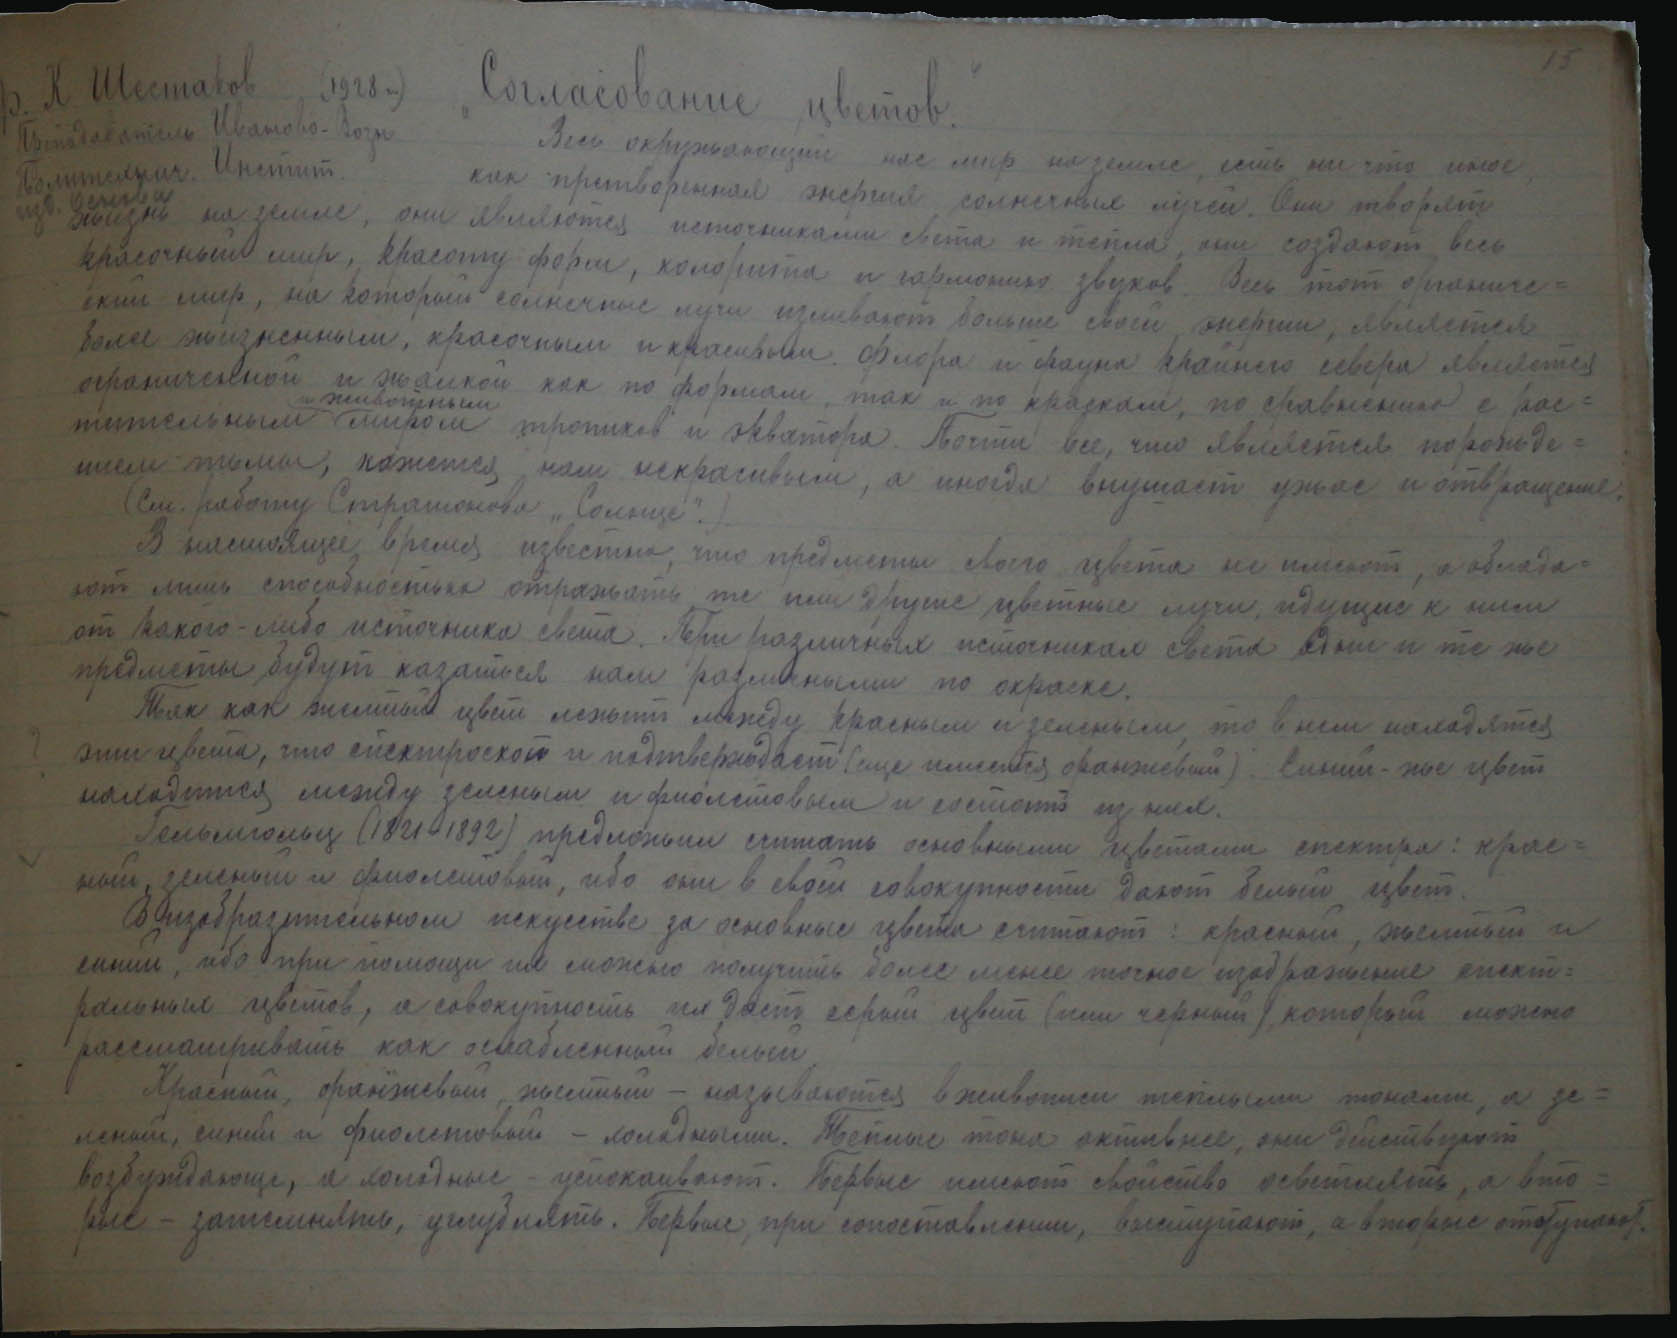 15
К Шестаков (1928 г.) „Согласование цветов."
Преподаватель Иваново-Возн
Политехнич. Инстит.
изд. Основа
Весь окружающий нас мир на земле, есть ни что иное,
как претворенная энергия солнечных лучей. Они творят
жизнь на земле, они являются источниками света и тепла, они создают весь
красочный мир, красоту форм, колорита и гармонию звуков. Весь тот органиче=
ский мир, на который солнечные лучи изливают больше своей энергии, является
более жизненным, красочным и красивым. Флора и фауна крайнего севера является
ограниченной и жалкой как по формам, так и по краскам, по сравнению с рас=
тительным и животным миром тропиков и экватора. Почти все, что является порожде=
нием тьмы, кажется нам некрасивым, а иногда внушает ужас и отвращение.
(См. работу Стратонова „Солнце".)
В настоящее время известно, что предметы своего цвета не имеют, а облада=
ют лишь способностью отражать те или другие цветные лучи, идущие к ним
от какого-либо источника света. При различных источниках света одни и те же
предметы будут казаться нам различными по окраске.
Так как желтый цвет лежит между красным и зеленым, то в нем находятся
? эти цвета, что спектроскоп и подтверждает (еще имеется оранжевый). Синий-же цвет
находится между зеленым и фиолетовым и состоит из них.
Гельмгольц (1821-1892) предложил считать основными цветами спектра: крас=
ный, зеленый и фиолетовый, ибо они в своей совокупности дают белый цвет.
В изобразительном искусстве за основные цвета считают: красный, желтый и
синий, ибо при помощи их можно получить более менее точное изображение спект=
ральных цветов, а совокупность их даст серый цвет (или черный), который можно
рассматривать как ослабленный белый.
Красный, оранжевый, желтый – называются в живописи теплыми тонами, а зе=
леный, синий и фиолетовый – холодными. Теплые тона активнее, они действуют
возбуждающе, а холодные – успокаивают. Первые имеют свойство осветлять, а вто=
рые – затемнять, углублять. Первые, при сопоставлении, выступают, а вторые отступают.